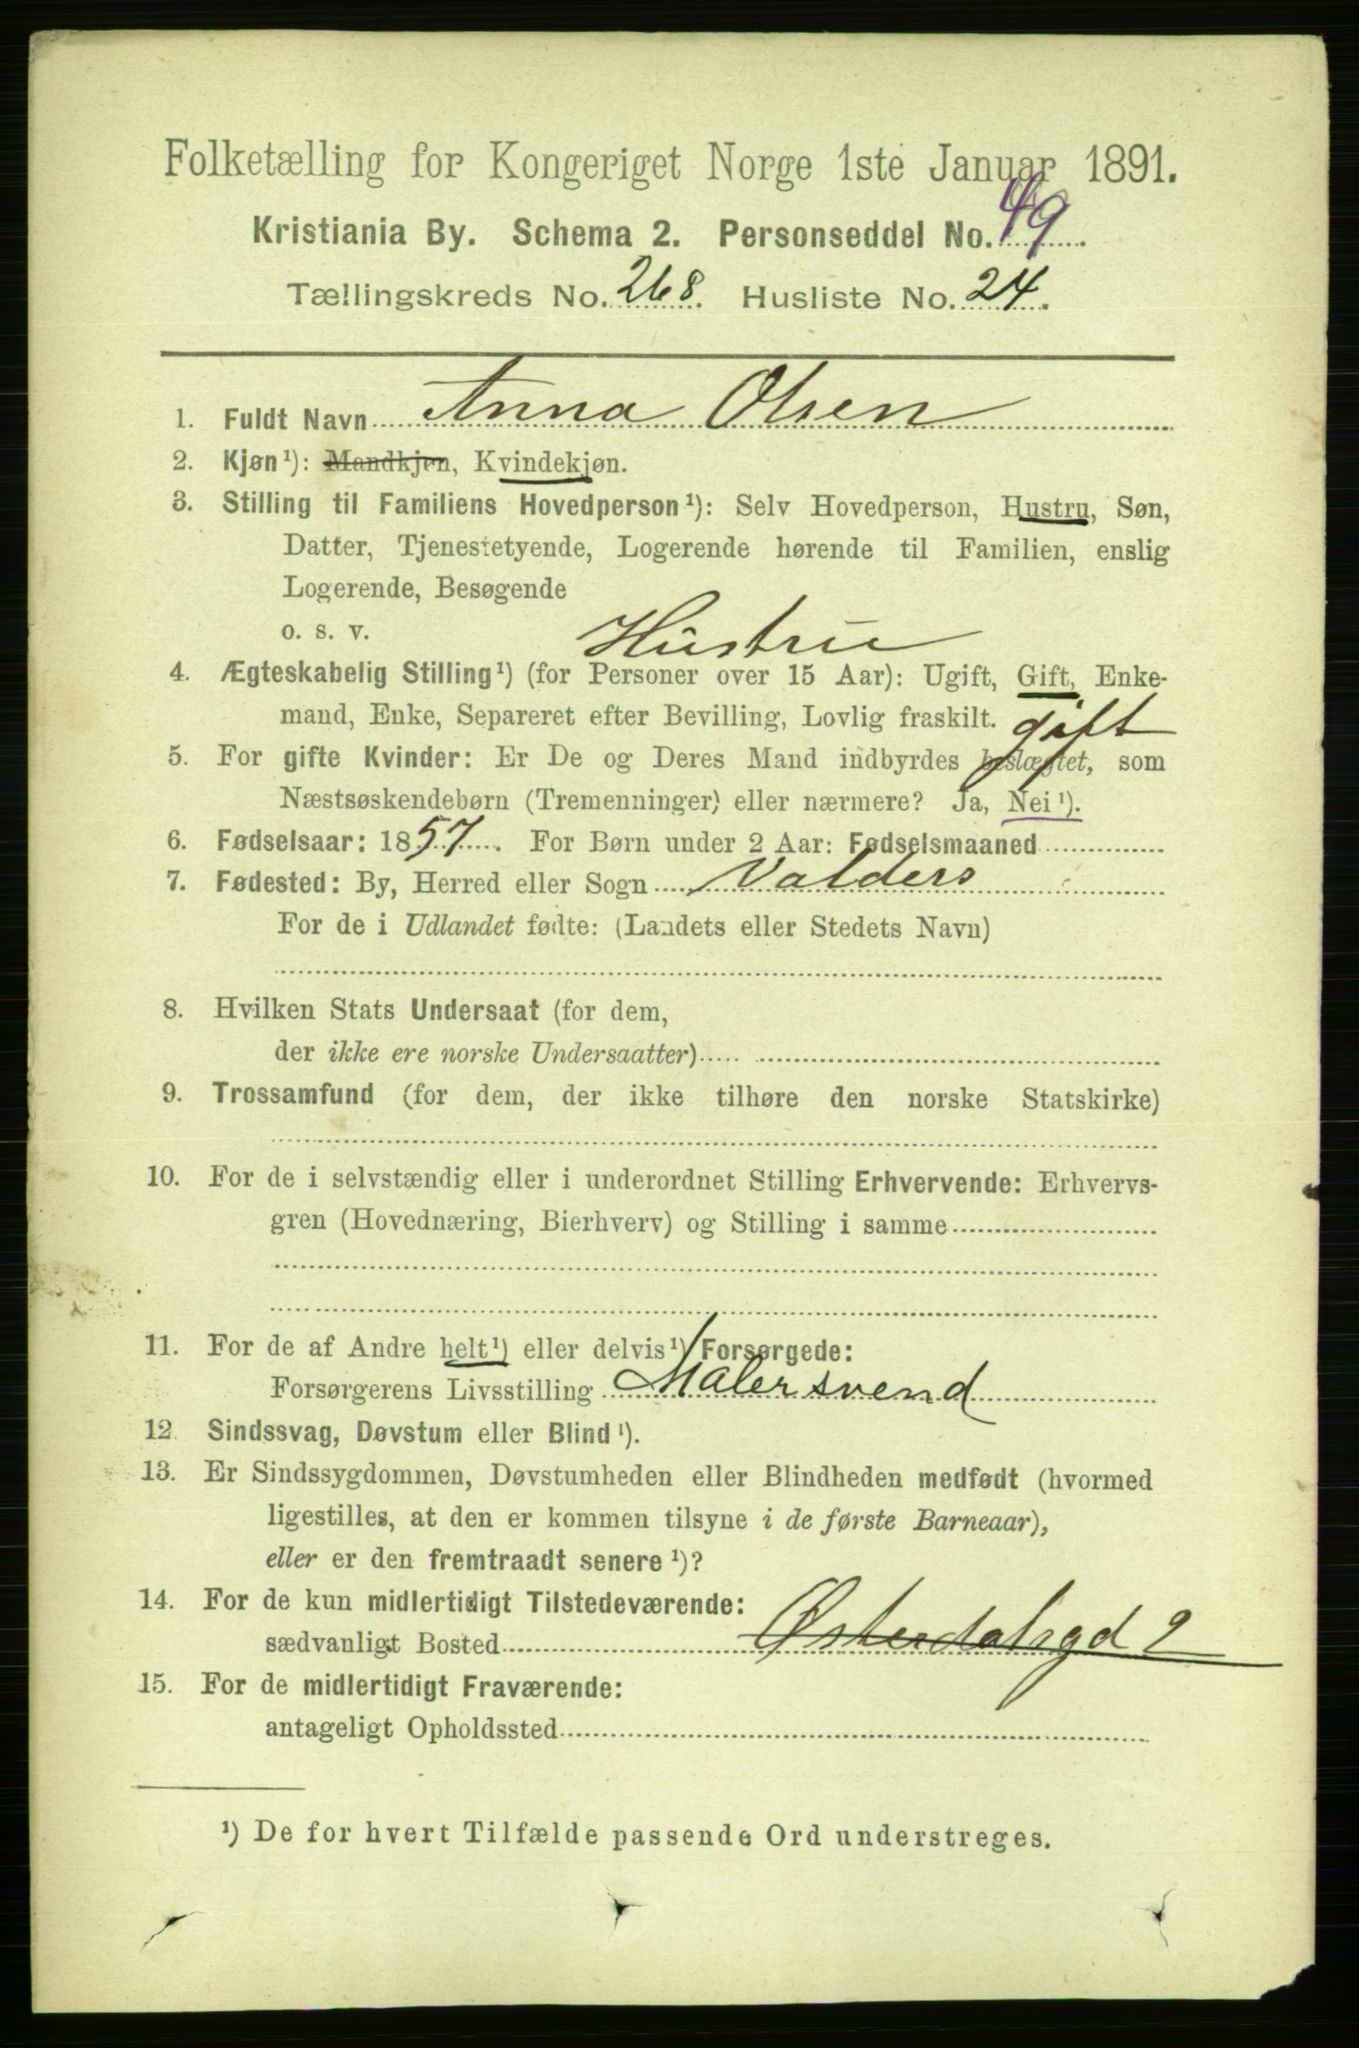 Folketælling for Kongeriget Norge 1ste Januar 1891.
Kristiania By. Schema 2. Personseddel No. 49.
Tællingskreds No. 268. Husliste No. 24.
1. Fuldt Navn Anna Olsen
2. Kjøn¹): Mandkjøn, Kvindekjøn.
3. Stilling til Familiens Hovedperson¹): Selv Hovedperson, Hustru, Søn,
Datter, Tjenestetyende, Logerende hørende til Familien, enslig
Logerende, Besøgende
o. s. v. Hustru
4. Ægteskabelig Stilling¹) (for Personer over 15 Aar): Ugift, Gift, Enke-
mand, Enke, Separeret efter Bevilling, Lovlig fraskilt. gift
5. For gifte Kvinder: Er De og Deres Mand indbyrdes beslægtet, som
Næstsøskendebørn (Tremenninger) eller nærmere? Ja, Nei¹).
6. Fødselsaar: 1857. For Børn under 2 Aar: Fødselsmaaned
7. Fødested: By, Herred eller Sogn Valders
For de i Udlandet fødte: (Landets eller Stedets Navn)
8. Hvilken Stats Undersaat (for dem,
der ikke ere norske Undersaatter)
9. Trossamfund (for dem, der ikke tilhøre den norske Statskirke)
10. For de i selvstændig eller i underordnet Stilling Erhvervende: Erhvervs-
gren (Hovednæring, Bierhverv) og Stilling i samme
11. For de af Andre helt¹) eller delvis¹) Forsørgede:
Forsørgerens Livsstilling Malersvend
12. Sindssvag, Døvstum eller Blind¹).
13. Er Sindssygdommen, Døvstumheden eller Blindheden medfødt (hvormed
ligestilles, at den er kommen tilsyne i de første Barneaar),
eller er den fremtraadt senere¹)?
14. For de kun midlertidigt Tilstedeværende:
sædvanligt Bosted Østerdalsgd 2
15. For de midlertidigt Fraværende:
antageligt Opholdssted
¹) De for hvert Tilfælde passende Ord understreges.